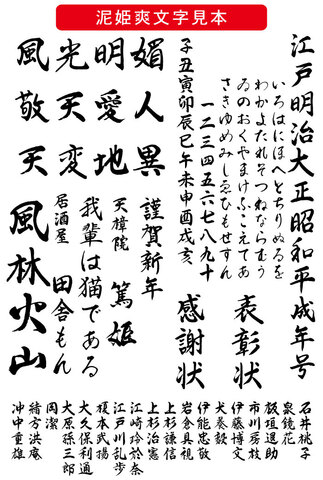 泥姫爽文字見本
江戸明治大正昭和平成年号
いろはにほへとちりぬるを
わかよたれそつねならむう
ゐのおくやまけふこえてあ
さきゆめみしゑひもせすん
一二三四五六七八九十
子丑寅卯辰巳午未申酉戌亥
表彰状
感謝状
風光明媚
敬天愛人
天変地異
謹賀新年
天璋院 篤姫
我輩は猫である
居酒屋 田舎もん
風林火山
石井桃子
泉鏡花
板垣退助
市川房枝
伊藤博文
犬養毅
伊能忠敬
岩倉具視
上杉謙信
上杉治憲
江崎玲於奈
江戸川乱歩
榎本武揚
大久保利通
大原孫三郎
岡潔
緒方洪庵
沖中重雄